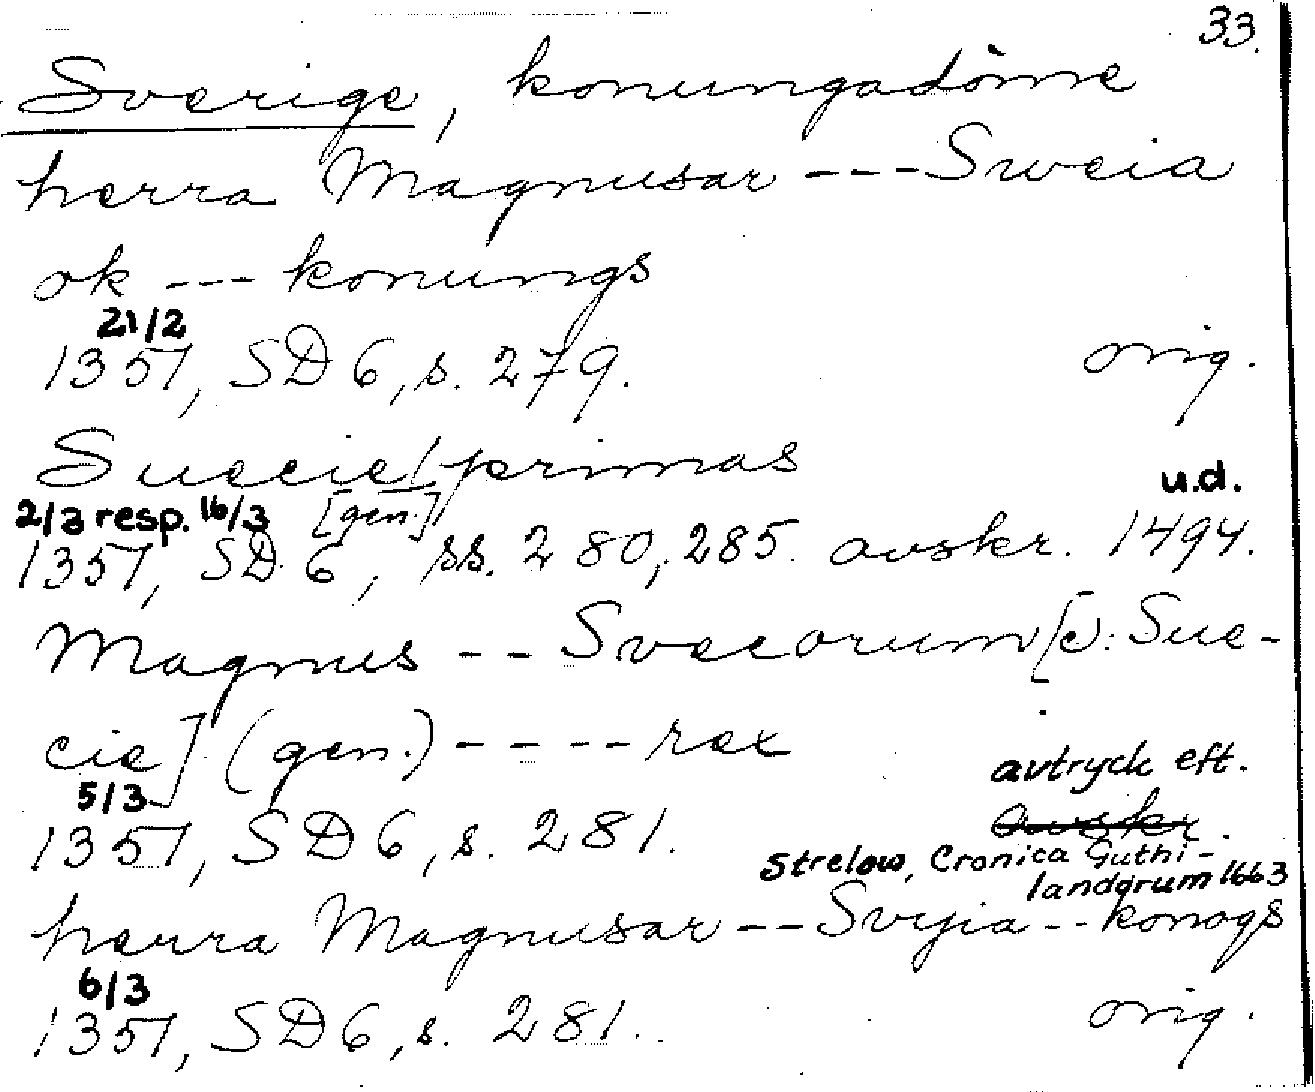 33.
Sverige, konungadöme
herra Magnusar --- Sweia
ok --- konungs
21/2
1351, SD 6, s. 279. orig.
Suecie/primas
[gen.] u.d.
2/3 resp. 16/3
1351, SD 6, ss. 280, 285. avskr. 1494.
Magnus -- Svecorum [ɔ: Sue-
cie] (gen.) ---- rex
5/3 avtryck eft.
1351, SD 6, s. 281. avskr.
Strelow, Cronica Guthi-
landorum 1663
herra Magnusar -- Svyia -- konogs
6/3
1351, SD 6, s. 281. orig.